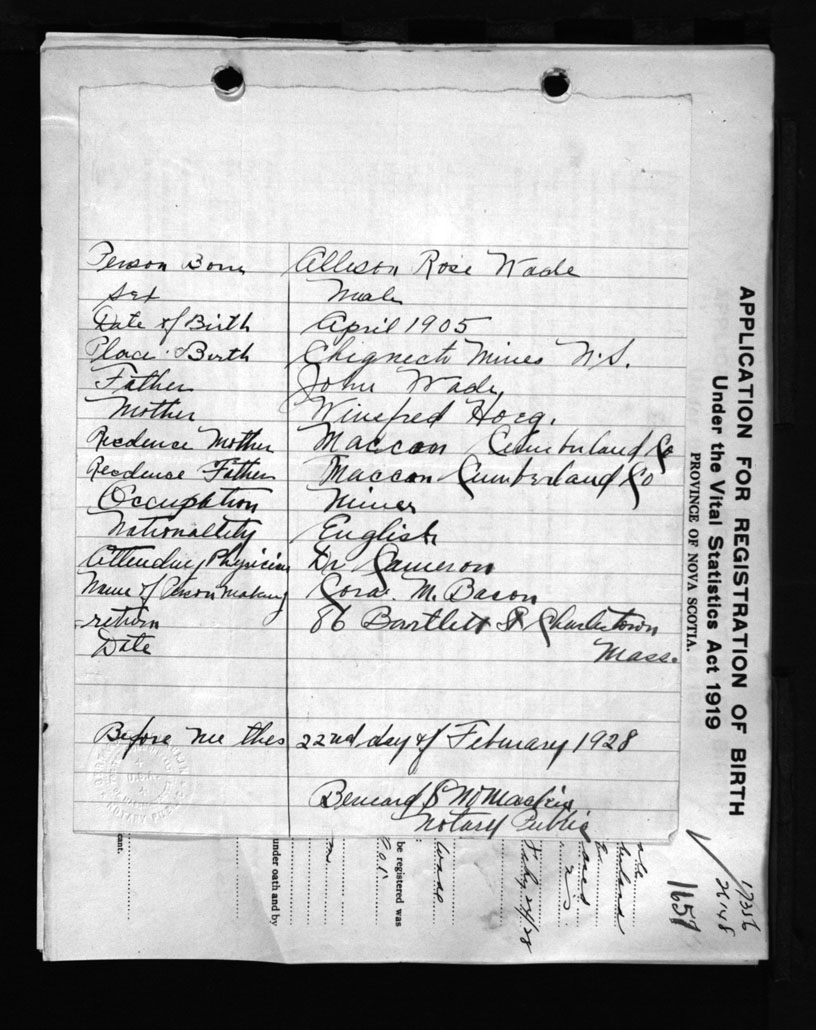 Person Born Allison Rose Wade
Sex Male
Date of Birth April 1905
Place Birth Chignecto Mines N.S.
Father John Wade
Mother Winefred Hoeg.
Recdence Mother Maccan Cumberland Co
Recdence Father Maccan Cumberland Co
Occupation Miner
Nationaltity English
Attending Physician Dr Cameron
Name of Person making Cora M. Bacon
return 86 Bartlett St Charlestown
Date Mass.
Before me this 22nd day of February 1928
Bernard S McMackin
Notary Public
APPLICATION FOR REGISTRATION OF BIRTH
Under the Vital Statistics Act 1919
PROVINCE OF NOVA SCOTIA.
be registered was
under oath and by
cant.
Wade
Feby 24/28
17356
1657